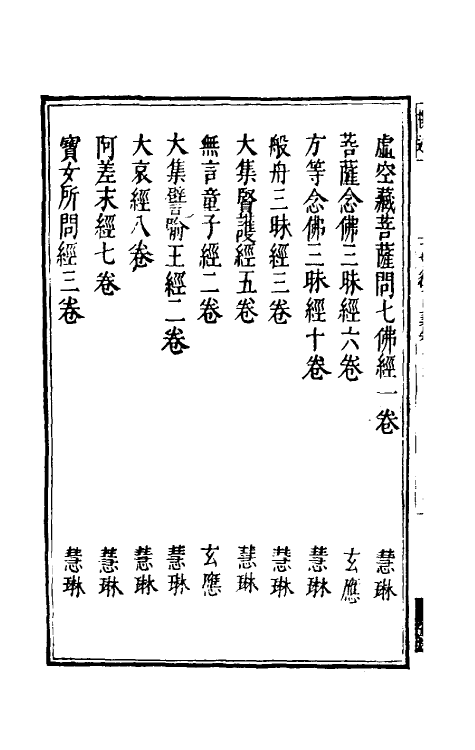 虛空藏菩薩問七佛經一卷 慧琳
菩薩念佛三昧經六卷 玄應
方等念佛三昧經十卷 慧琳
般舟三昧經三卷 慧琳
大集賢護經五卷 慧琳
無言童子經二卷 玄應
大集譬喻王經二卷 慧琳
大哀經八卷 慧琳
阿差末經七卷 慧琳
寶女所問經三卷 慧琳